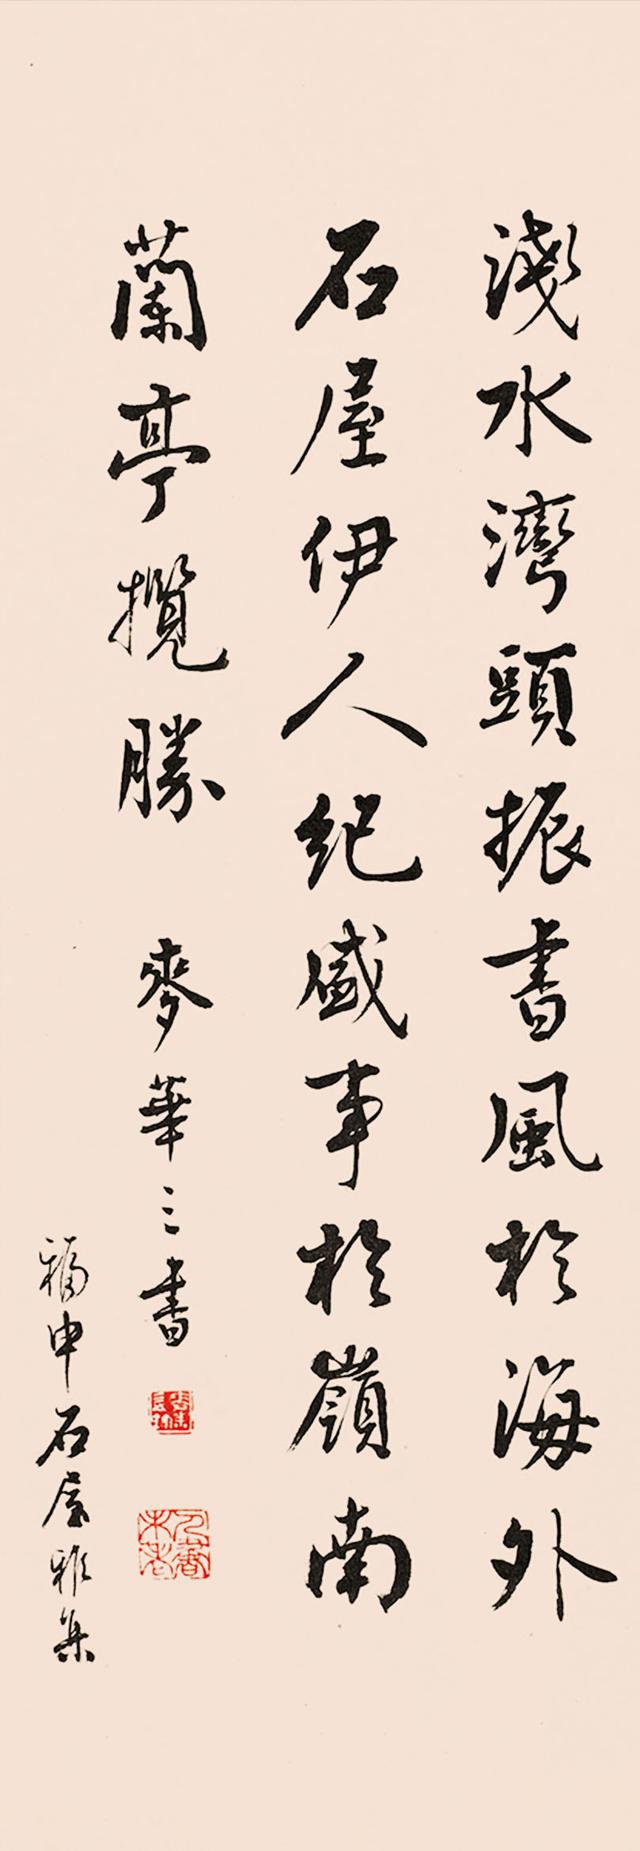 淺水灣頭振書風於海外
石屋伊人紀盛事於嶺南
蘭亭攬勝
麥華三書
福申石屋雅集